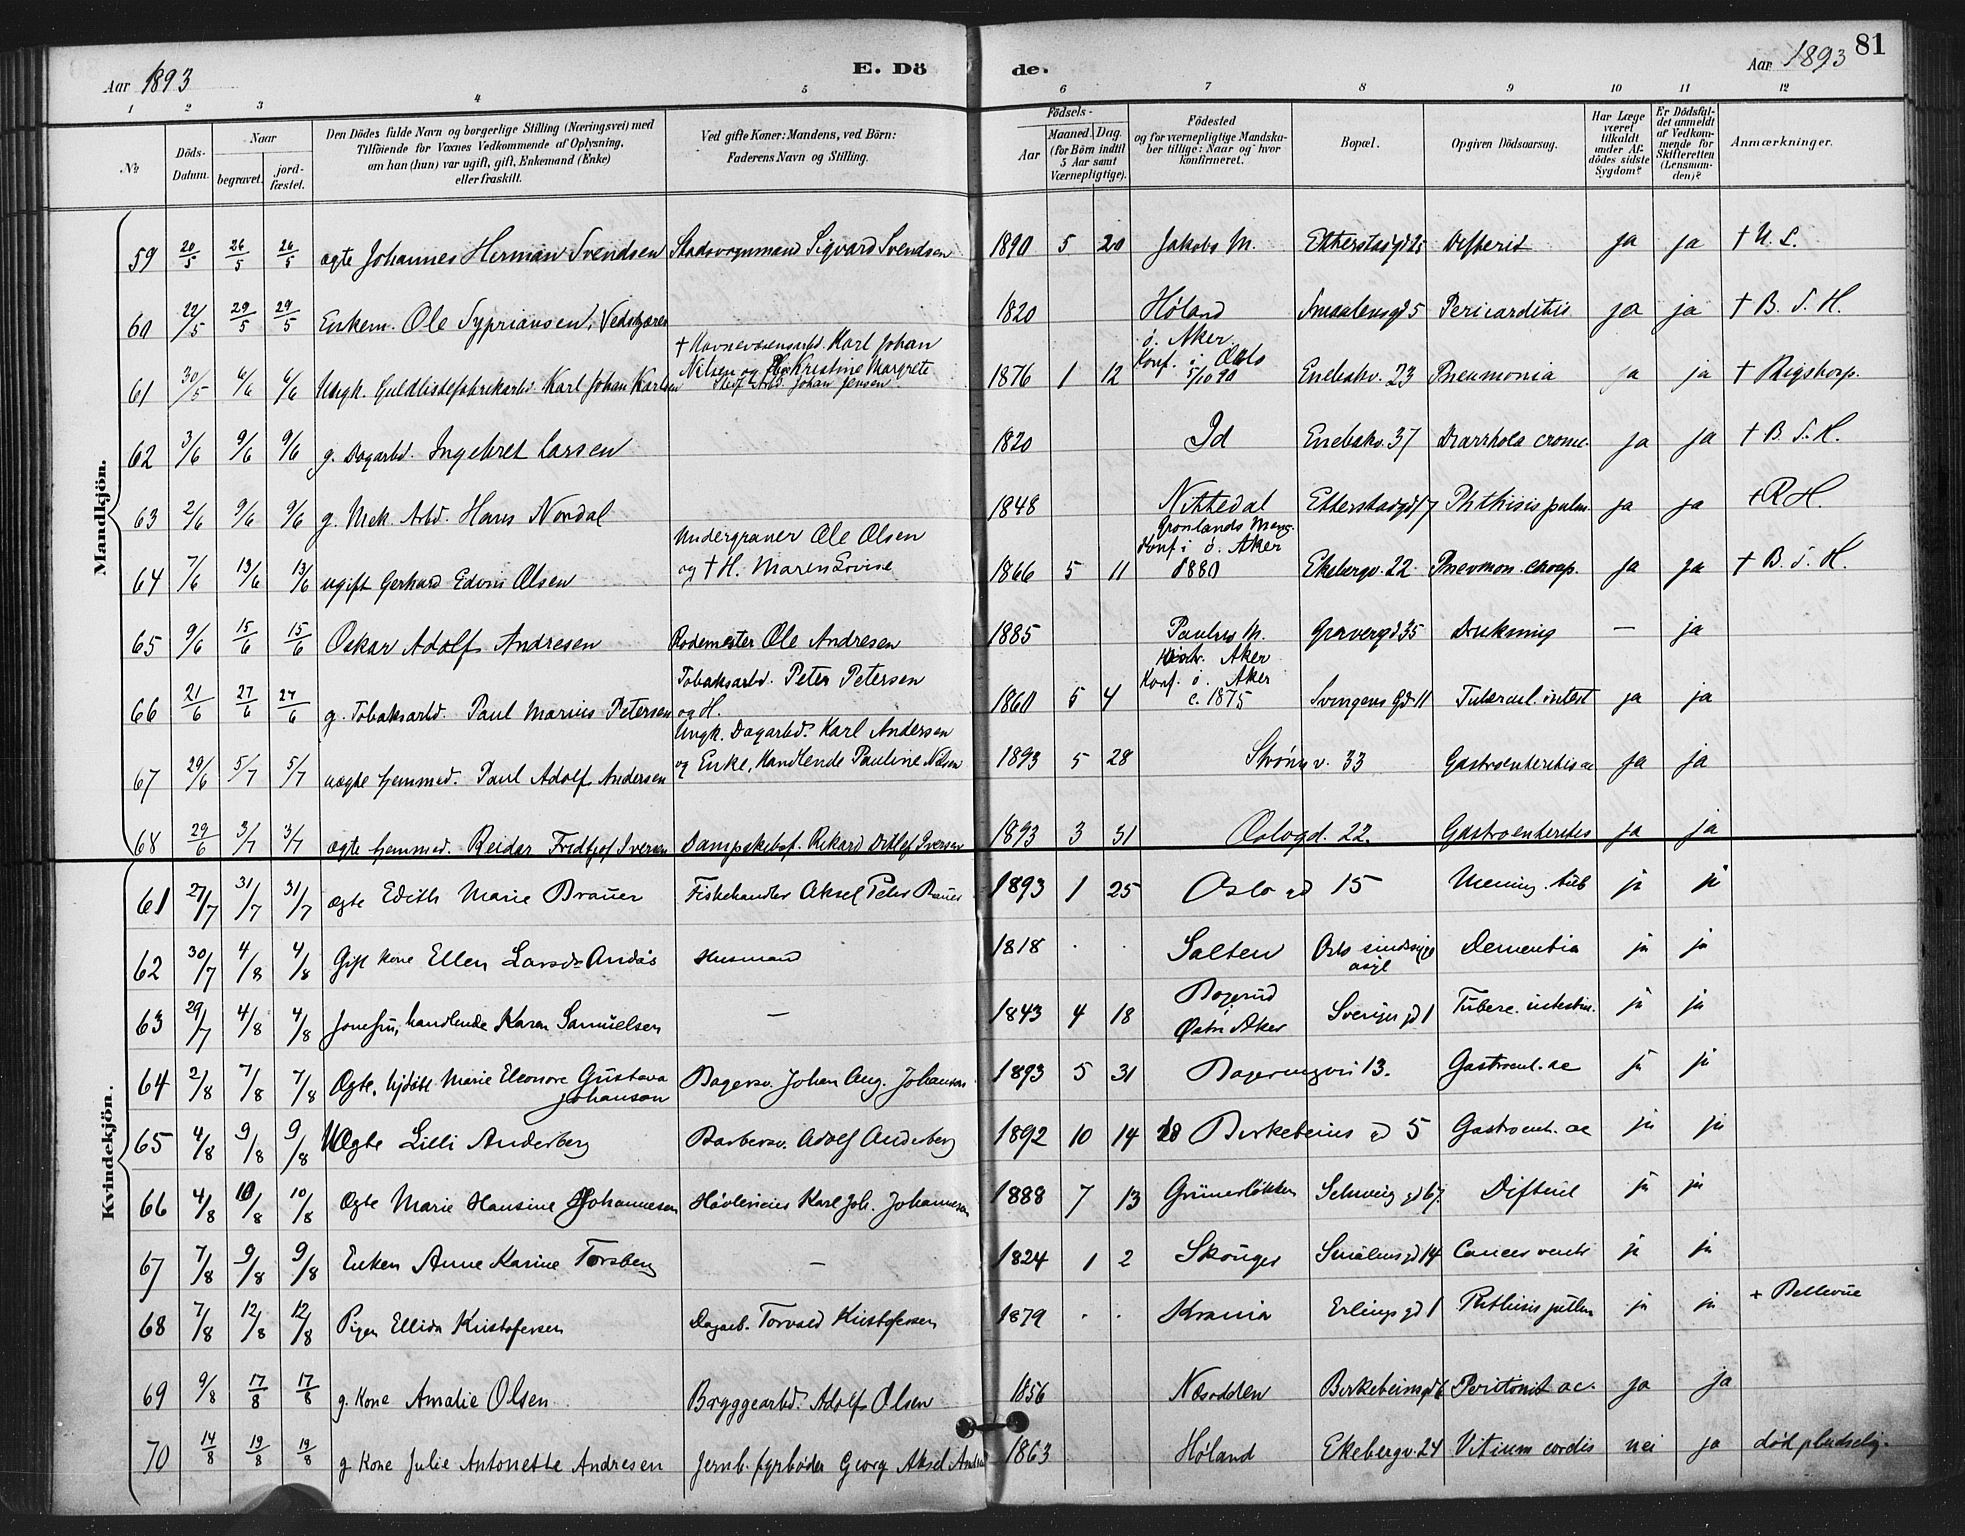 Aar 1893
E. Dö
de.
Aar 1893
81
1 2 3 4 5 6 7 8 9 10 11 12
No
Döds-Datum.
Naar
begravet.
jordfæstet.
Den Dödes fulde Navn og borgerlige Stilling (Næringsvei) med Tilföiende for Voxnes Vedkommende af Oplysning, om han (hun) var ugift, gift, Enkemand (Enke) eller fraskilt.
Ved gifte Koner: Mandens, ved Börn: Faderens Navn og Stilling.
Födsels-
Aar
Maaned. Dag.
(for Börn indtil 5 Aar samt Værnepligtige).
Födested og for værnepligtige Mandskaber tillige: Naar og hvor konfirmeret.
Bopæl.
Opgiven Dödsaarsag.
Har Læge været tilkaldt under Afdödes sidste Sygdom?
Er Dödsfaldet anmeldt af Vedkommende for Skifteretten (Lensmanden)?
Anmærkninger.
Mandkjön.
59 20/5 26/5 26/5 ægte Johannes Herman Svendsen Stadsvognmand Sigvard Svendsen 1890 5 20 Jakobs M. Etterstadgd 25 Difterit ja ja † U. L.
60 22/5 29/5 29/5 Enkem. Ole Sypriansen, Vedskjærer 1820 Høland Smaalensgd 5 Pericarditis ja ja † B. S. H.
61 30/5 6/6 6/6 Ungk. Guldlistefabrikarbd. Karl Johan Karlsen † Havnevæsensarbd. Karl Johan Nilsen og Kristine Margrete Stef. Arbd. Johan Jensen 1876 1 12 ö. Aker Konf. i Oslo 5/10 90 Enebakv. 23 Pneumonia ja ja † Rigshosp.
62 3/6 9/6 9/6 g. Dagarbd. Ingebret Larsen 1820 Id Enebakv. 37 Diarrhoea cronic. ja ja † B. S. H.
63 2/6 9/6 9/6 g. Mek. Arbd. Hans Nordal 1848 Nittedal Etterstadgd 17 Phthisis pulm. ja ja † R H.
64 7/6 13/6 13/6 ugift Gerhard Edvin Olsen Undergraver Ole Olsen og † H. Maren Lovise 1866 5 11 Grønlands Meng. Konf i ö. Aker 1880 Ekebergv. 22 Pnevmon. croup. ja ja † B. S. H.
65 9/6 15/6 15/6 Oskar Adolf Andresen Rodemester Ole Andresen 1885 Paulus M. Gravergd. 35 Drukning — ja
66 21/6 27/6 27/6 g. Tobaksarbd. Paul Marius Petersen Tobaksarbd. Peter Petersen og H. 1860 5 4 Aker Konf. ö. Aker c. 1875 Svingens Gd 11 Tubercul. intest ja ja
67 29/6 5/7 5/7 uægte hjemmed. Paul Adolf Andersen Ungk. Dagarbd. Karl Andersen og Enke, Handlende Pauline Nilsen 1893 5 28 Strømsv. 33 Gastroenteritis ac ja ja
68 29/6 3/7 3/7 ægte hjemmed. Reidar Fridtjof Iversen Dampskibsf. Rikard Ditlef Iversen 1893 3 31 Oslogd. 22. Gastroenterites ja ja
Kvindekjön.
61 27/7 31/7 31/7 ægte Edith Marie Brauer Fiskehandler Aksel Peter Brauer 1893 1 25 Oslo gd 15 Mening. tub ja ja
62 30/7 4/8 4/8 Gift kone Ellen Larsdr Andås Husmand 1818 . . Salten Oslo sindssyge asyl Dementia ja ja
63 29/7 4/8 4/8 Jomfru, handlende Karen Samuelsen — 1843 4 18 Bogerud Østre Aker Sverigs gd 1 Tuberc. intestin. ja ja
64 2/8 7/8 7/8 Ægte, hjdöbt Marie Eleonore Gustava Johanson Bagersv. Johan Aug. Johanson 1893 5 31 13. Gastroent. ac ja ja
65 4/8 9/8 9/8 Ægte Lilli Anderberg Barbersv. Adolf Anderberg 1892 10 14 Birkebeins gd 5 Gastroent. ac ja ja
66 4/8 10/8 10/8 Ægte Marie Hansine Johannesen Høvlerieier Karl Joh. Johannesen 1888 7 13 Grünerløkken Schweig gd 67. Difterit ja ja
67 7/8 9/8 9/8 Enken Anne Karine Torsberg — 1824 1 2 Skouger Smålens gd 14 Cancer ventr ja ja
68 7/8 12/8 12/8 Pigen Ellida Kristofersen Dagarb. Torvald Kristofersen 1879 . . Krania Erlings gd 1 Phthisis pulm ja ja + Bellevue
69 9/8 17/8 17/8 g. Kone Amalie Olsen Bryggearbd. Adolf Olsen 1856 Næsodden Birkebeinsgd 6 Peritonit ac. ja ja
70 14/8 19/8 19/8 g Kone Julie Antonette Andresen Jernb. fyrbøder Georg Aksel 1863 Høland Ekebergv. 24 Vitium cordis nei ja død pludselig.